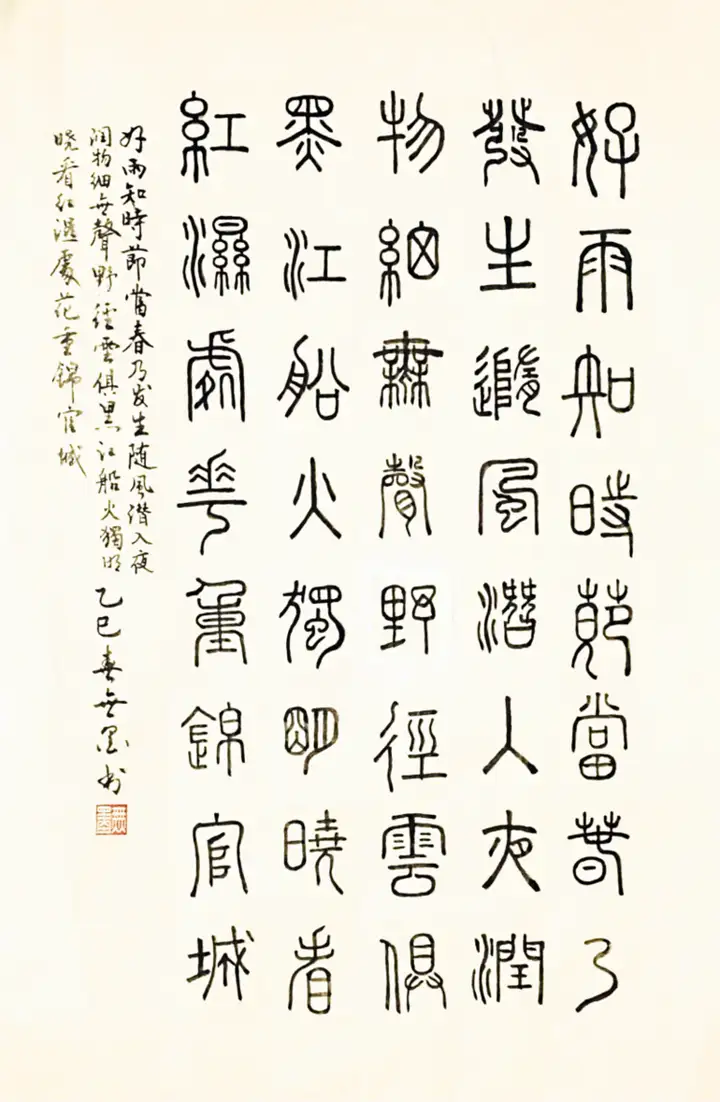 好雨知時節當春乃
發生隨風潛入夜潤
物細無聲野徑雲俱
黑江船火獨明曉看
紅濕處華重錦官城
好雨知時節當春乃发生随風潛入夜
润物细無聲野徑雲俱黑江船火獨明
晓看红濕處花重錦官城
乙巳春無墨书